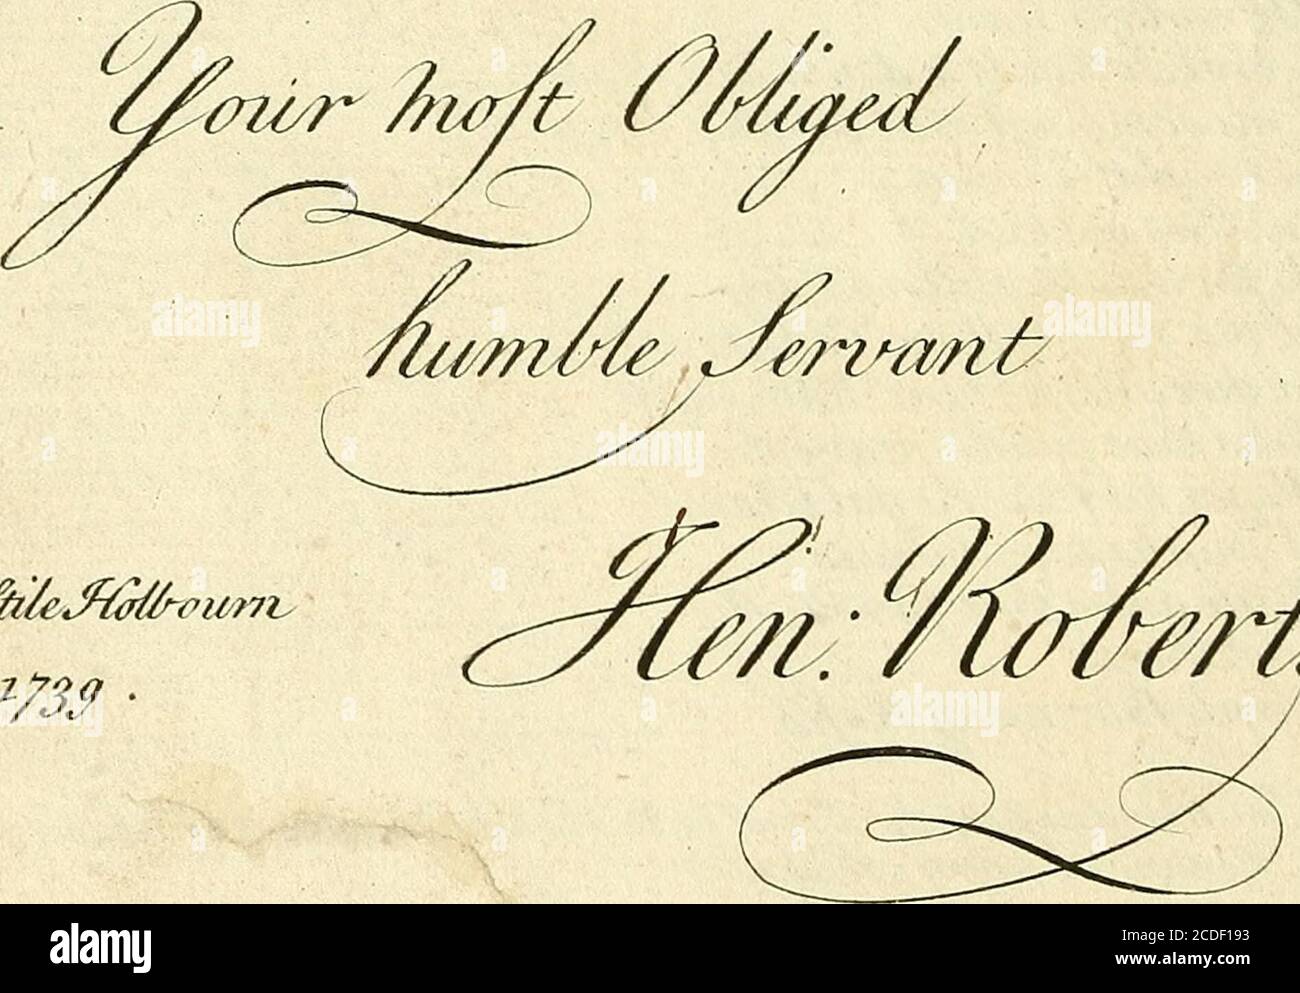 Your moſt Obliged
humble Servant
Hen: Roberts.
ſtile Holbourn
1739.
alamy
Image ID: 2CDF193
www.alamy.com